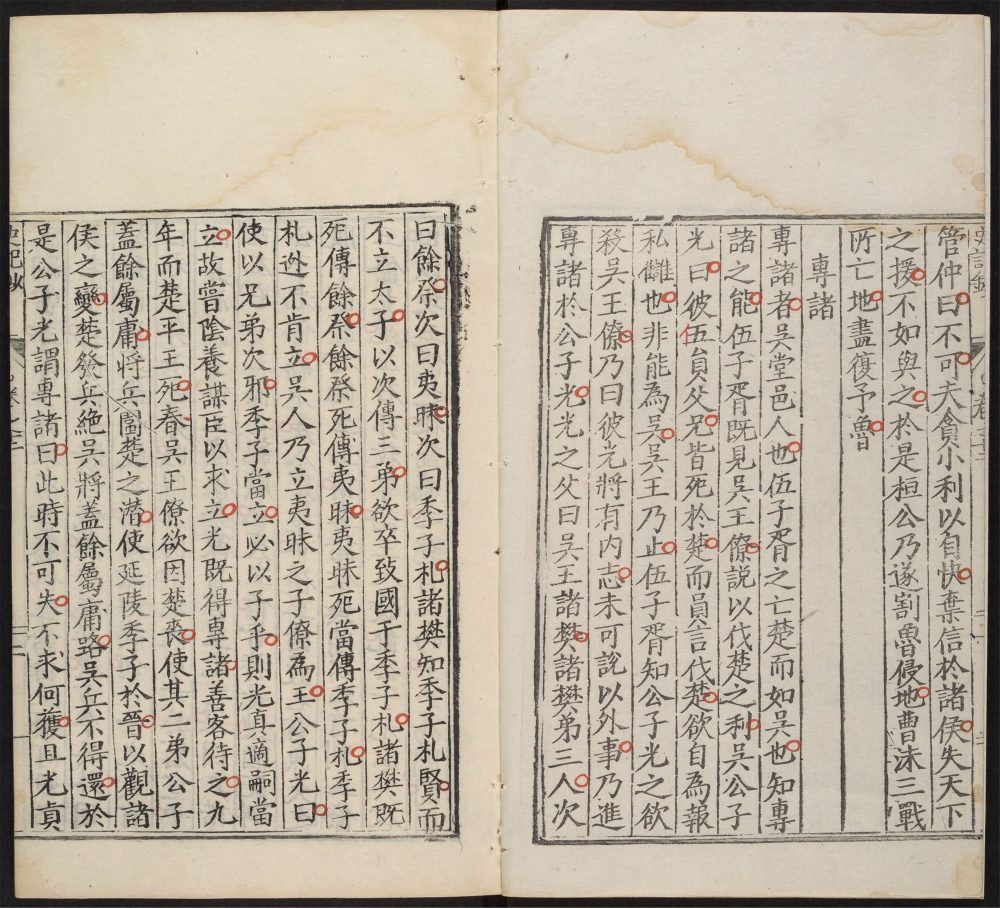 管仲曰不可夫貪小利以自快棄信於諸侯失天下
之援不如與之於是桓公乃遂割魯侵地曹沬三戰
所亡地盡復予魯
專諸
專諸者吳堂邑人也伍子胥之亡楚而如吳也知專
諸之能伍子胥既見吳王僚說以伐楚之利吳公子
光曰彼伍員父兄皆死於楚而員言伐楚欲自為報
私讎也非能為吳吳王乃止伍子胥知公子光之欲
殺吳王僚乃曰彼光將有內志未可說以外事乃進
專諸於公子光光之父曰吳王諸樊諸樊弟三人次
曰餘祭次曰夷眛次曰季子札諸樊知季子札賢而
不立太子以次傳三弟欲卒致國于季子札諸樊既
死傳餘祭餘祭死傳夷眛夷眛死當傳季子札季子
札迯不肯立吳人乃立夷眛之子僚為王公子光曰
使以兄弟次邪季子當立必以子乎則光真適嗣當
立故嘗陰養謀臣以求立光既得專諸善客待之九
年而楚平王死春吳王僚欲因楚喪使其二弟公子
蓋餘屬庸將兵圍楚之潛使延陵季子於晉以觀諸
侯之變楚發兵絶吳將蓋餘屬庸路吳兵不得還於
是公子光謂專諸曰此時不可失不求何獲且光真